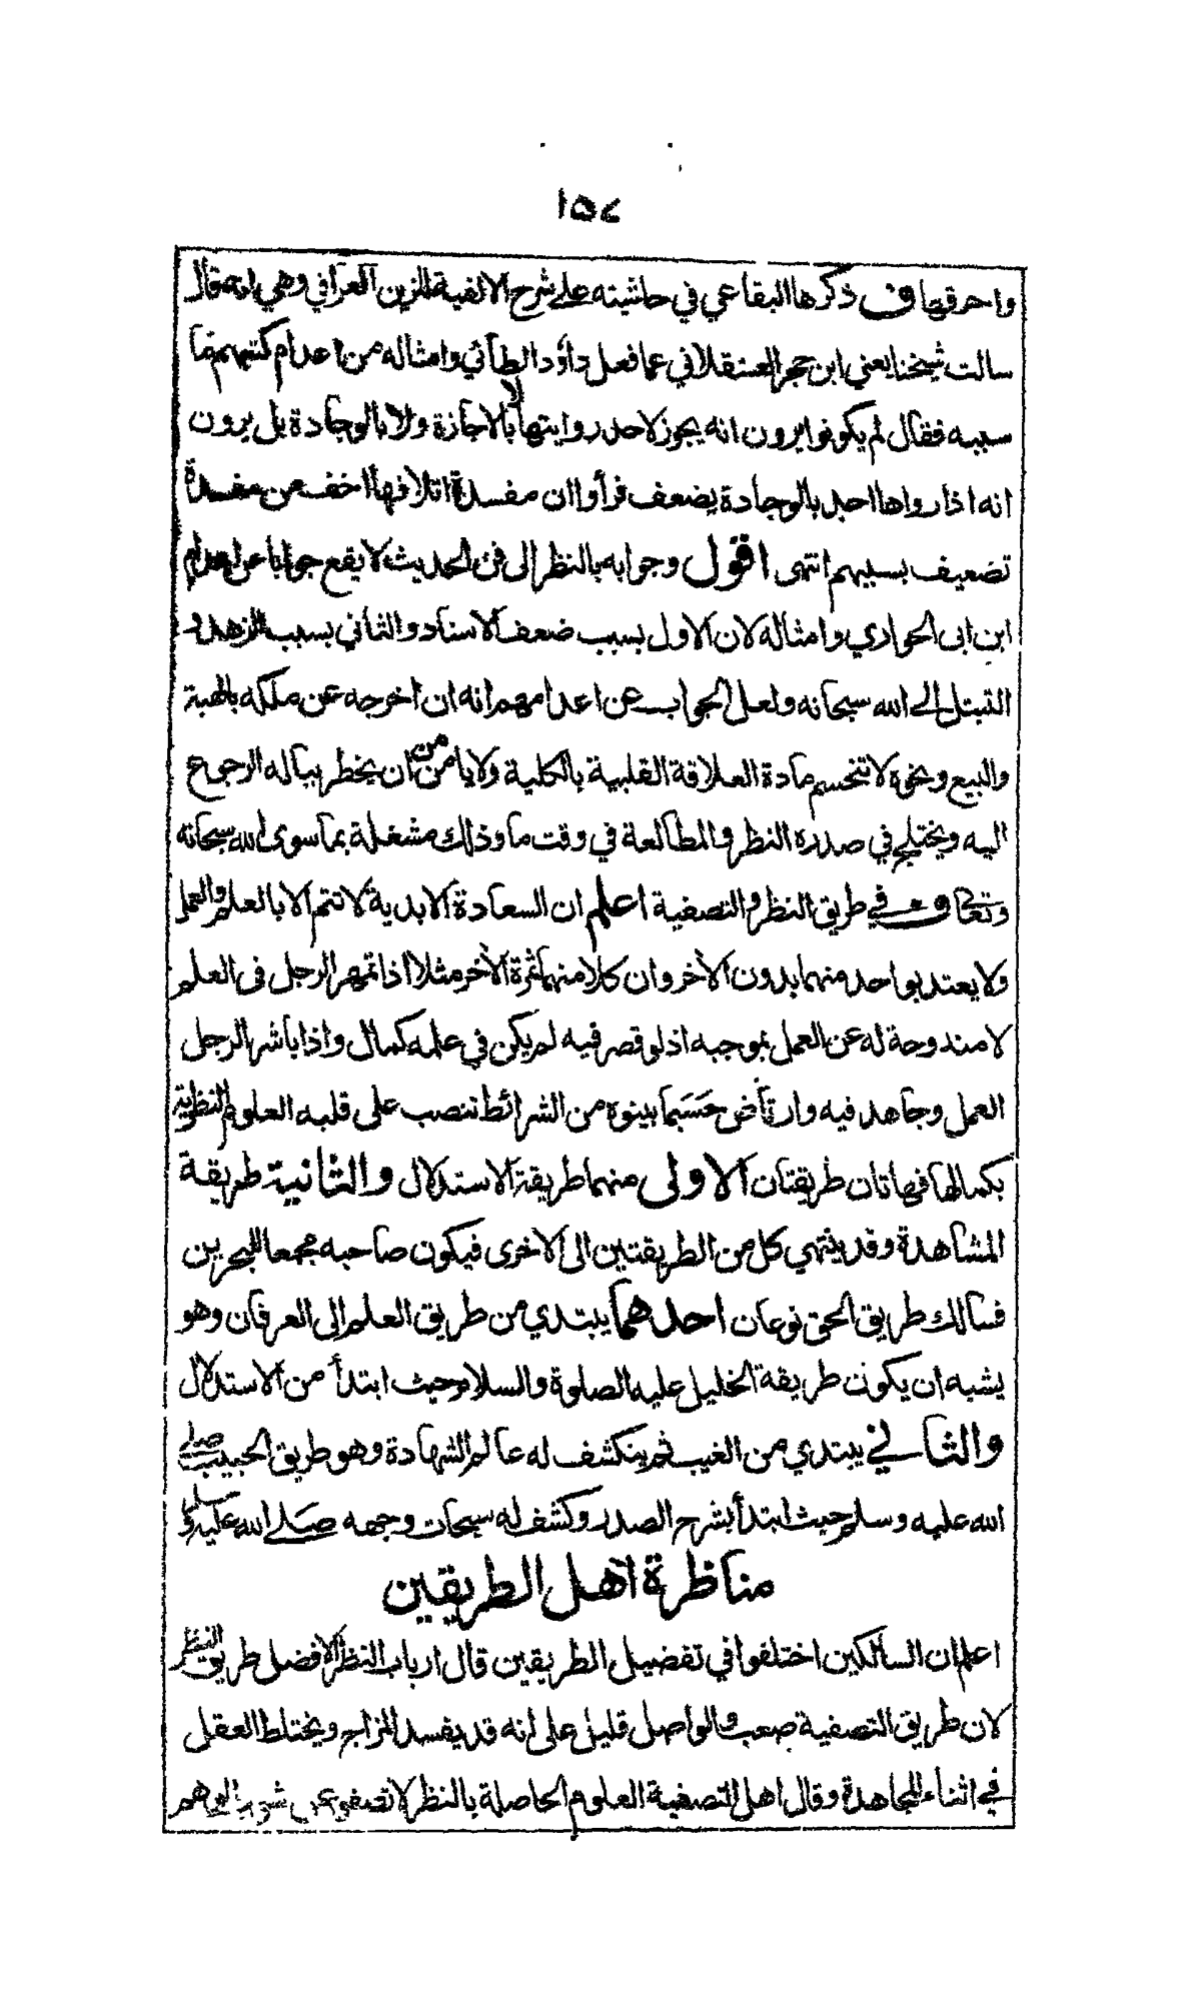 ١٥٤
واحرقها ف ذكرها البقاعي في حاشيته على شرح الالفية للزين العراقي وهي انه قال
سالت شيخنا يعني ابن حجر العسقلاني عما فعل داؤد الطآئي وامثاله من اعدام كتبهم ما
سببه فقال لم يكونوا يرون انه يجوز لاحد روايتها لا بالاجازة ولا بالوجادة بل يرون
انه اذا رواها احد بالوجادة يضعف فرأوا ان مفسدة اتلافها اخف من مفسدة
تضعيف بسببهم انتهى اقول وجوابه بالنظر الى فن الحديث لا يقع جوابا عن اعدام
ابن ابى الحواري وامثاله لان الاول بسبب ضعف الاسناد والثاني بسبب الزهد و
التبتل الى الله سبحانه ولعل الجواب عن اعدامهم انه ان اخرجه عن ملكه بالهبة
والبيع ونحوه لا تنحسم مادة العلاقة القلبية بالكلية ولا يامن من ان يخطر بباله الرجوع
اليه ويختلج في صدره النظر والمطالعة في وقت ما وذلك مشغلة بما سوى الله سبحانه
وتعالى ف في طريق النظر والتصفية اعلم ان السعادة الابدية لا تتم الا بالعلم والعمل
ولا يعتد بواحد منهما بدون الاخر وان كلا منهما ثمرة الاخر مثلا اذا تمهر الرجل فى العلم
لا مندوحة له عن العمل بموجبه اذ لو قصر فيه لم يكن في علمه كمال واذا باشر الرجل
العمل وجاهد فيه وارتاض حسبما بينوه من الشرائط تنصب على قلبه العلوم النظرية
بكمالها فهاتان طريقتان الاولى منهما طريقة الاستدلال والثانية طريقة
المشاهدة وقد ينتهي كل من الطريقتين الى الاخرى فيكون صاحبه مجمعا للبحرين
فسالك طريق الحق نوعان احدهما يبتدي من طريق العلم الى العرفان وهو
يشبه ان يكون طريقة الخليل عليه الصلوة والسلام حيث ابتدأ من الاستدلال
والثاني يبتدي من الغيب ثم ينكشف له عالم الشهادة وهو طريق الحبيب صلى
الله عليه وسلم حيث ابتدأ بشرح الصدر وكشف له سبحات وجهه صلى الله عليه وسلم
مناظرة اهل الطريقين
اعلم ان السالكين اختلفوا في تفضيل الطريقين قال ارباب النظر الافضل طريق النظر
لان طريق التصفية صعب والواصل قليل على انه قد يفسد المزاج ويختلط العقل
في اثناء المجاهدة وقال اهل التصفية العلوم الحاصلة بالنظر لا تصفو عن شوب الوهم